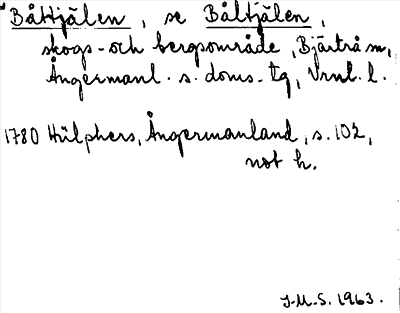 Båttjälen, se Båltjälen,
skogs- och bergsområde, Bjärtrå sn,
Ångermanl. s. doms. tg, Vrnl. l.
1780 Hülphers, Ångermanland, s. 102,
not h.
J.M.S. 1963.